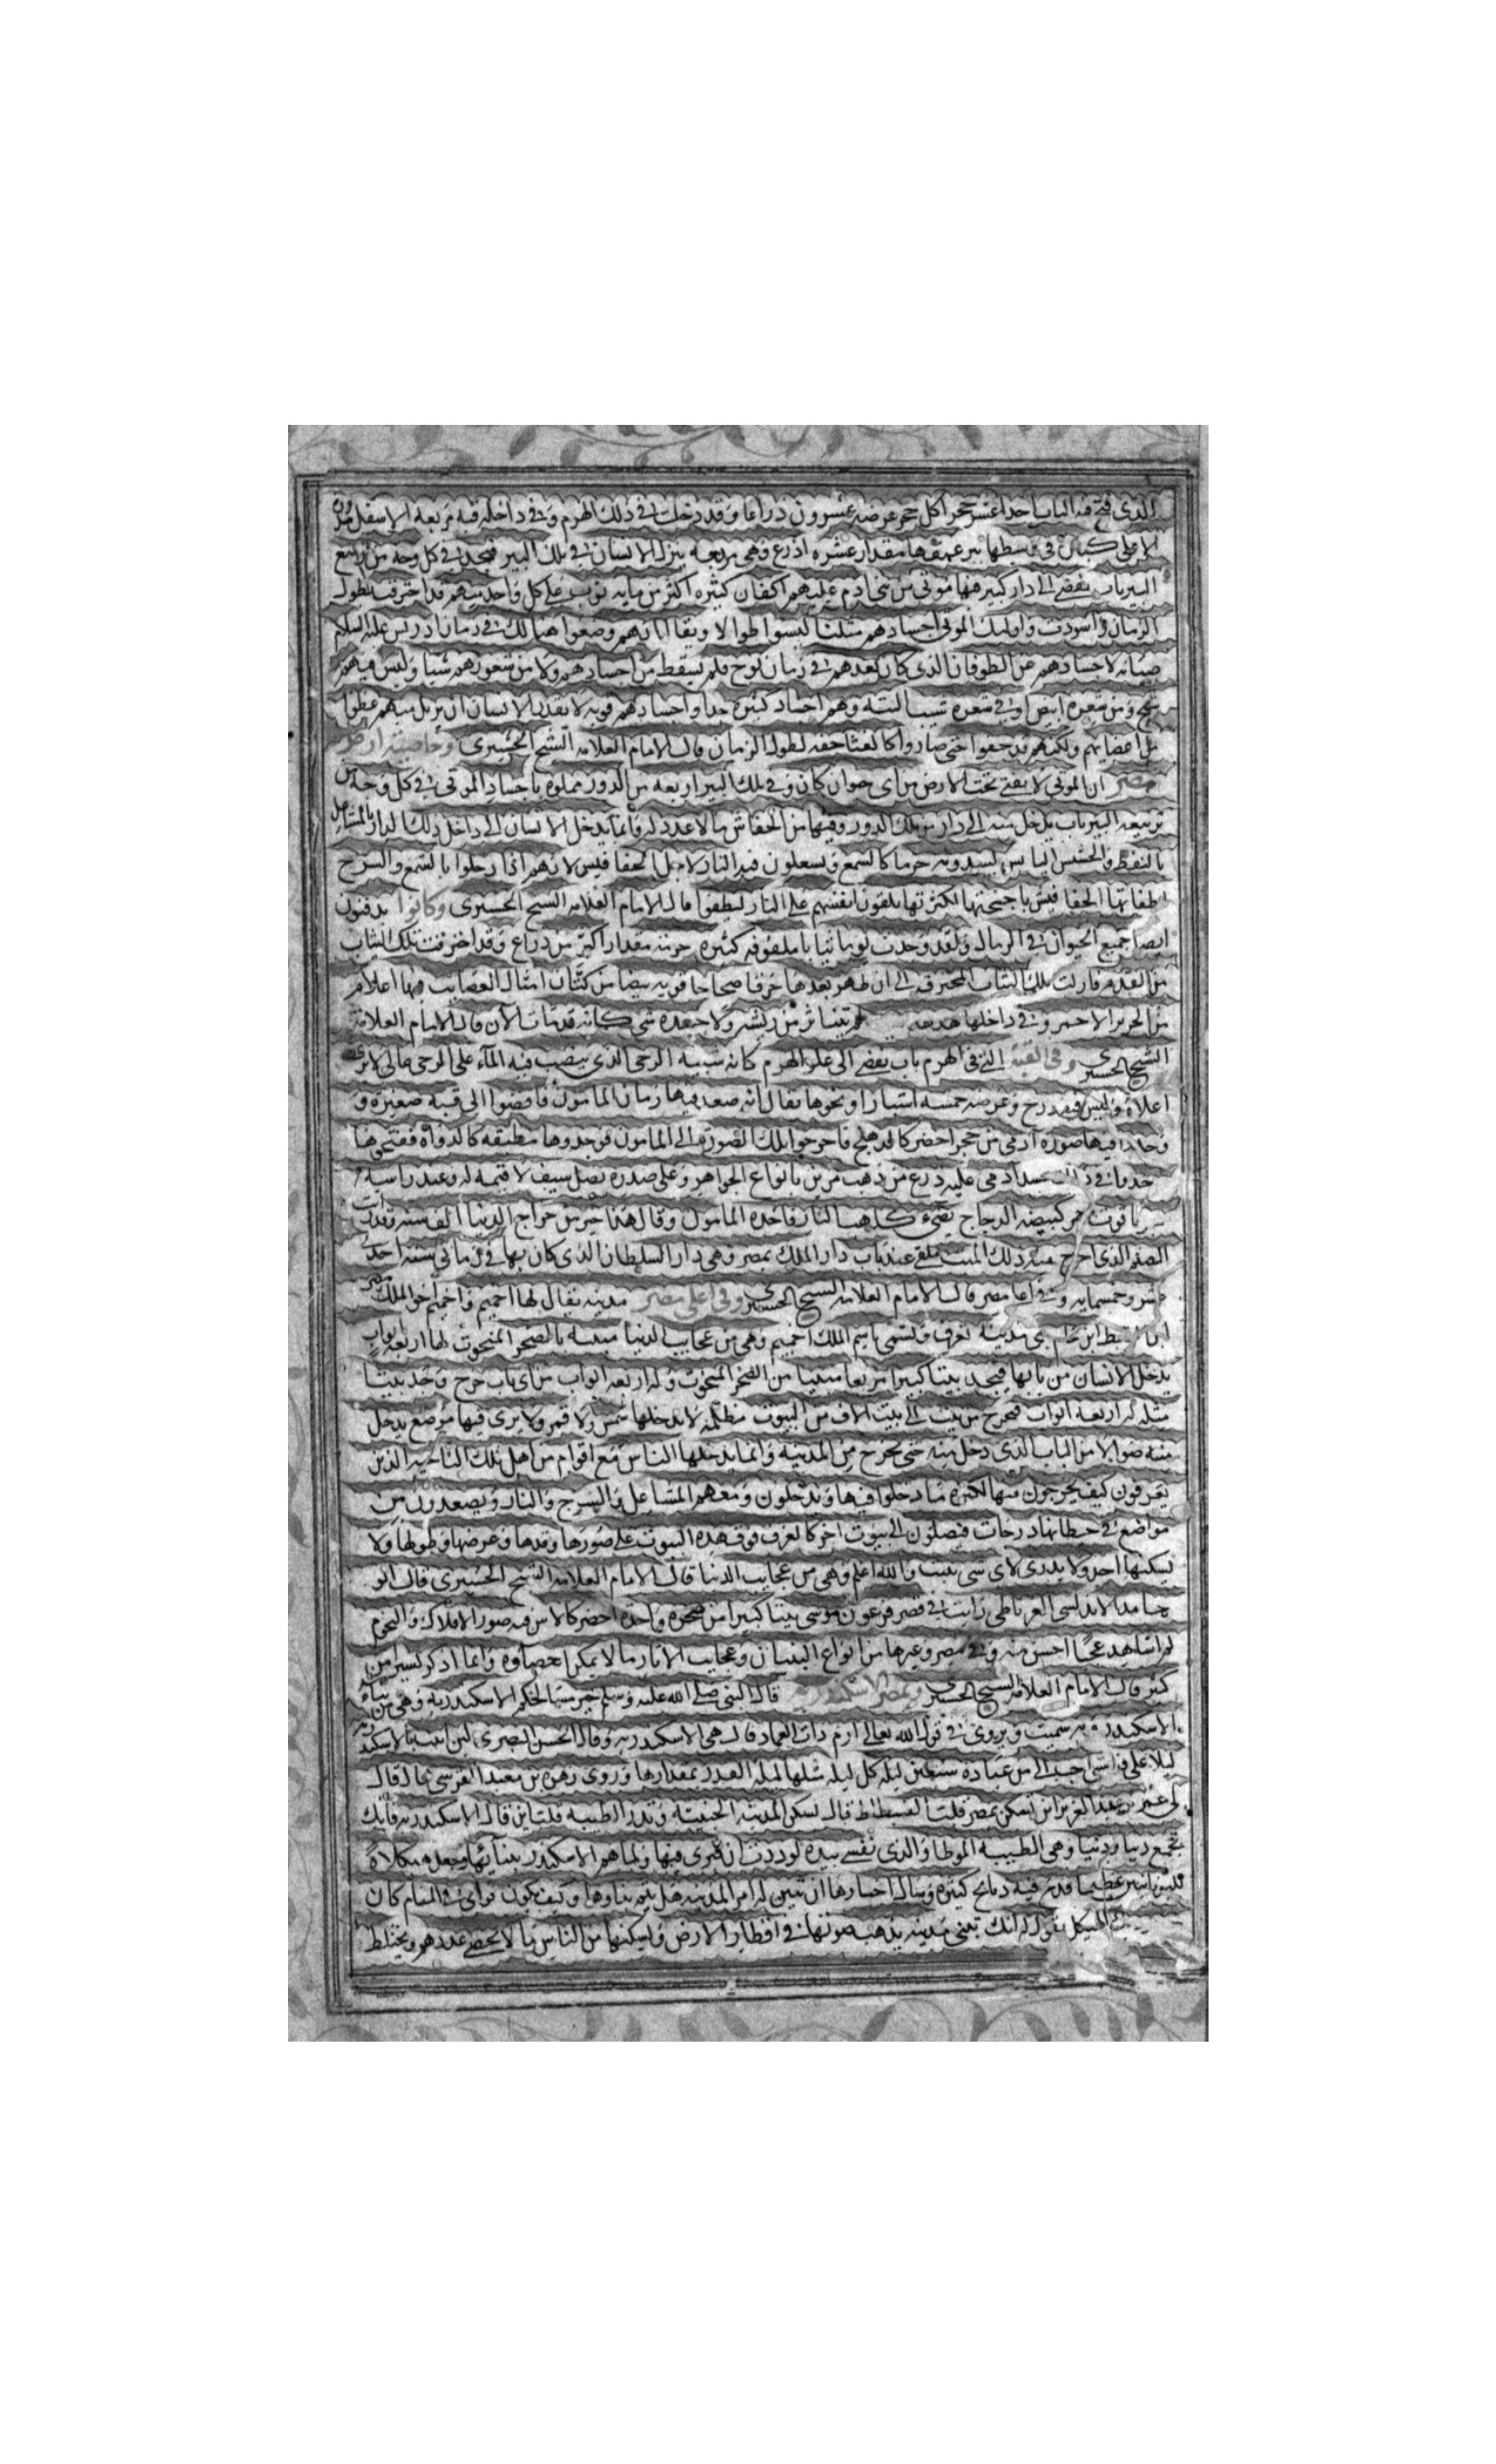 الذي فتح فيه الباب احدا عشر حجرا كل حجر عرضه عشرون ذراعا وقد دخلت في ذلك الهرم وفي داخله قبه مربعه الاسفل مدوره
الاعلى في وسطها بير عمقها مقدار عشره اذرع وهي مربعه ينزل الانسان في تلك البير فيجد في كل وجه من
البير باب يفضي الى دار كبير فيها موتى من بني ادم عليهم اكفان كثيره اكثر من مايه ثوب على كل واحد منهم قد احترقت بطول
الزمان واسودت واوليك الموتى اجسادهم مثلنا ليسوا طوالا ويقال انهم وضعوا هنالك في زمان ادريس عليه السلام
صيانه لاجسادهم عن الطوفان الذي كان بعدهم في زمان نوح فلم يسقط من اجسادهم ولا من شعورهم شيا وليس فيهم
شيخ ومن شعره ابيض او في شعره شيب البته وهم اجساد كثيره جدا واجسادهم قويه لا يقدر الانسان ان يزيل منهم عضوا
من اعضايهم ولكنهم قد جفوا حتى صاروا كالغثا خفه لطول الزمان قال الامام العلامه الشيخ الحسيري وخاصيته ارض
مصر ان الموتى لا يفنى تحت الارض من اي حيوان كان وفي تلك البير اربعه من الدور مملوه باجساد الموتى في كل وجه من
تربيعه البير باب يدخل منه الى دار من تلك الدور وفيها من الخفاش ما لا عدد له وانما يدخل الانسان الى داخل ذلك الدار بالمشاعل
بالنفط والخشب اليابس يشدونه حزما كالشمع ويشعلون فيه النار لاجل الخفافيش لانهم اذا دخلوا بالشمع والسرج
اطفاتها الخفافيش باجنحتها لكثرتها يلقون انفسهم على النار ليطفوا قال الامام العلامه الشيخ الحسيري وكانوا يدفنون
ايضا جميع الحيوان في الرمال ولقد وجدت يوما ثيابا ملفوفه كثيره حزمه مقدار اكثر من ذراع وقد احترقت تلك الثياب
من القدم فازلت تلك الثياب المحترقه الى ان ظهر بعدها خرقا صحاحا قويه بيضا من كتان امثال العصايب فيها اعلام
من الحرير الاحمر وفي داخلها هدهد يتناثر من ريشه ولا جسده شي كانه قد مات الآن قال الامام العلامة
الشيخ الحسيري وفي القبة التي في الهرم باب يفضي الى علو الهرم كانه شبيه الرحى الذي ينصب فيه المآء على الرحى خالي لا يرى
اعلاه وليس فيه درج وعرضه خمسه اشبار او نحوها يقال انه صعد فيها زمان المامون فافضوا الى قبه صغيره و
وجدوا فيها صوره ادمي من حجر اخضر كالدهنج فاخرجوا تلك الصوره الى المامون فوجدوها مطبقه كالدواه ففتحوها
جسد ادمي عليه درع من ذهب مزين بانواع الجواهر وعلى صدره نصل سيف لا قيمه له وعند راسه
ياقوت كبيضه الدجاج يضيء كلهب النار فاخذه المامون وقال هذا خير من خراج الدنيا الف سنه وقد رايت
الصنم الذي اخرج منه ذلك الميت ملقى عند باب دار الملك بمصر وهي دار السلطان الذي كان بها في زماني سنه احدى
عشر وخمسمايه قال الامام العلامه الشيخ الحسيري وفي اعلى مصر مدينه يقال لها اخميم واخميم اخو الملك مصر
مدينه تعرف وتسمى باسم الملك اخميم وهي من عجايب الدنيا مبنيه بالصخر المنحوت لها اربعه ابواب
يدخل الانسان من بابها فيجد بيتا كبيرا مربعا مبنيا من الصخر المنحوت وله اربعه ابواب من اي باب خرج وجد بيتا
مثله له اربعه ابواب فيخرج من بيت الى بيت الاف من البيوت مظلمه لا تدخلها شمس ولا قمر ولا يرى فيها موضع يدخل
منه ضوا الا من الباب الذي دخل منه حتى يخرج من المدينه وانما يدخلها الناس مع اقوام من اهل تلك الناحيه الذين
يعرفون كيف يخرجون منها لكثره ما دخلوا فيها ويدخلون ومعهم المشاعل والسرج والنار ويصعدون من
مواضع في حيطانها درجات فيصلون الى بيوت اخر كالغرف فوق هذه البيوت على صورها وقدها وعرضها وطولها ولا
يسكنها احد ولا يدرى لاي شي بنيت والله اعلم وهي من عجايب الدنيا قال الامام العلامه الشيخ الحسيري قال ابو
حامد الاندلسي الغرناطي رايت في قصر فرعون موسى بيتا كبيرا من صخره واحدة اخضر كالاس فيه صور الافلاك والنجوم
لم اشاهد عجبا احسن منه وفي مصر وغيرها من انواع البنيان وعجايب الاثار ما لا يمكن احصاوه وانما اذكر ليسير من
كثير قال الامام العلامه الشيخ الحسيري وبمصر الاسكندريه قال النبي صلى الله عليه وسلم خير مسالحكم الاسكندريه وهي من بناء
الاسكندر وبه سميت ويروى في قول الله تعالى ارم ذات العماد قال هي الاسكندريه وقال الحسن البصري لين ابيت بالاسكندريه
ليلا على فراشي احب الي من عباده سبعين ليله كل ليله مثلها ليله القدر بمقدارها وروى زهره بن معبد القرشي قال قال
لي عمر بن عبد العزيز اين تسكن بمصر قلت الفسطاط قال تسكن المدينه الخبيثه وتذر الطيبه قلت اين قال الاسكندريه فانك
تجمع دينا ودنيا وهي الطيبه الموطا والذي نفسي بيده لوددت ان قبري فيها ولما هم الاسكندر ببنائها وجعله هيكلا
قدم فيه ذبائح كثيره وسال احبارها ان تبين له امر المدينه هل يتم بناوها وكيف يكون فراى في المنام كان
الهيكل يقول له انك تبني مدينه يذهب صوتها في اقطار الارض ويسكنها من الناس ما لا يحصى عددهم ويختلط